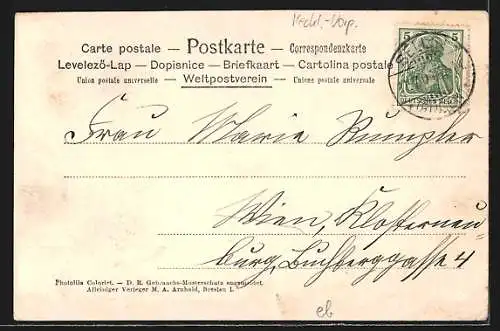 Meckl.-Vorp.
Carte postale — Postkarte — Correspondenzkarte
Levelezö-Lap — Dopisnice — Briefkaart — Cartolina postale
Union postale universelle — Weltpostverein — Unione postale universale
5 5
DEUTSCHES REICH
Frau Marie Rumpler
Wien, Klosterneu-
burg, Buchberggasse 4
Photolin Coloriet. — D. R. Gebrauchs-Musterschutz angemeldet.
Alleiniger Verleger M. A. Arnhold, Dresden I.
eb